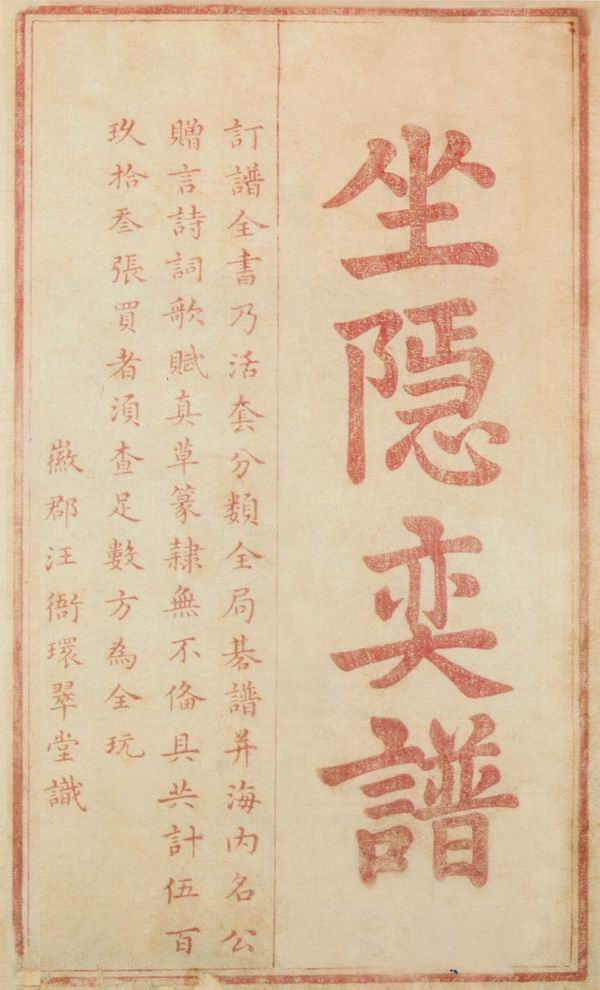 坐隱奕譜
訂譜全書乃活套分類全局碁譜并海内名公
贈言詩詞歌賦真草篆隷無不俻具共計伍百
玖拾叄張買者湏查足數方為全玩
徽郡汪衙環翠堂識